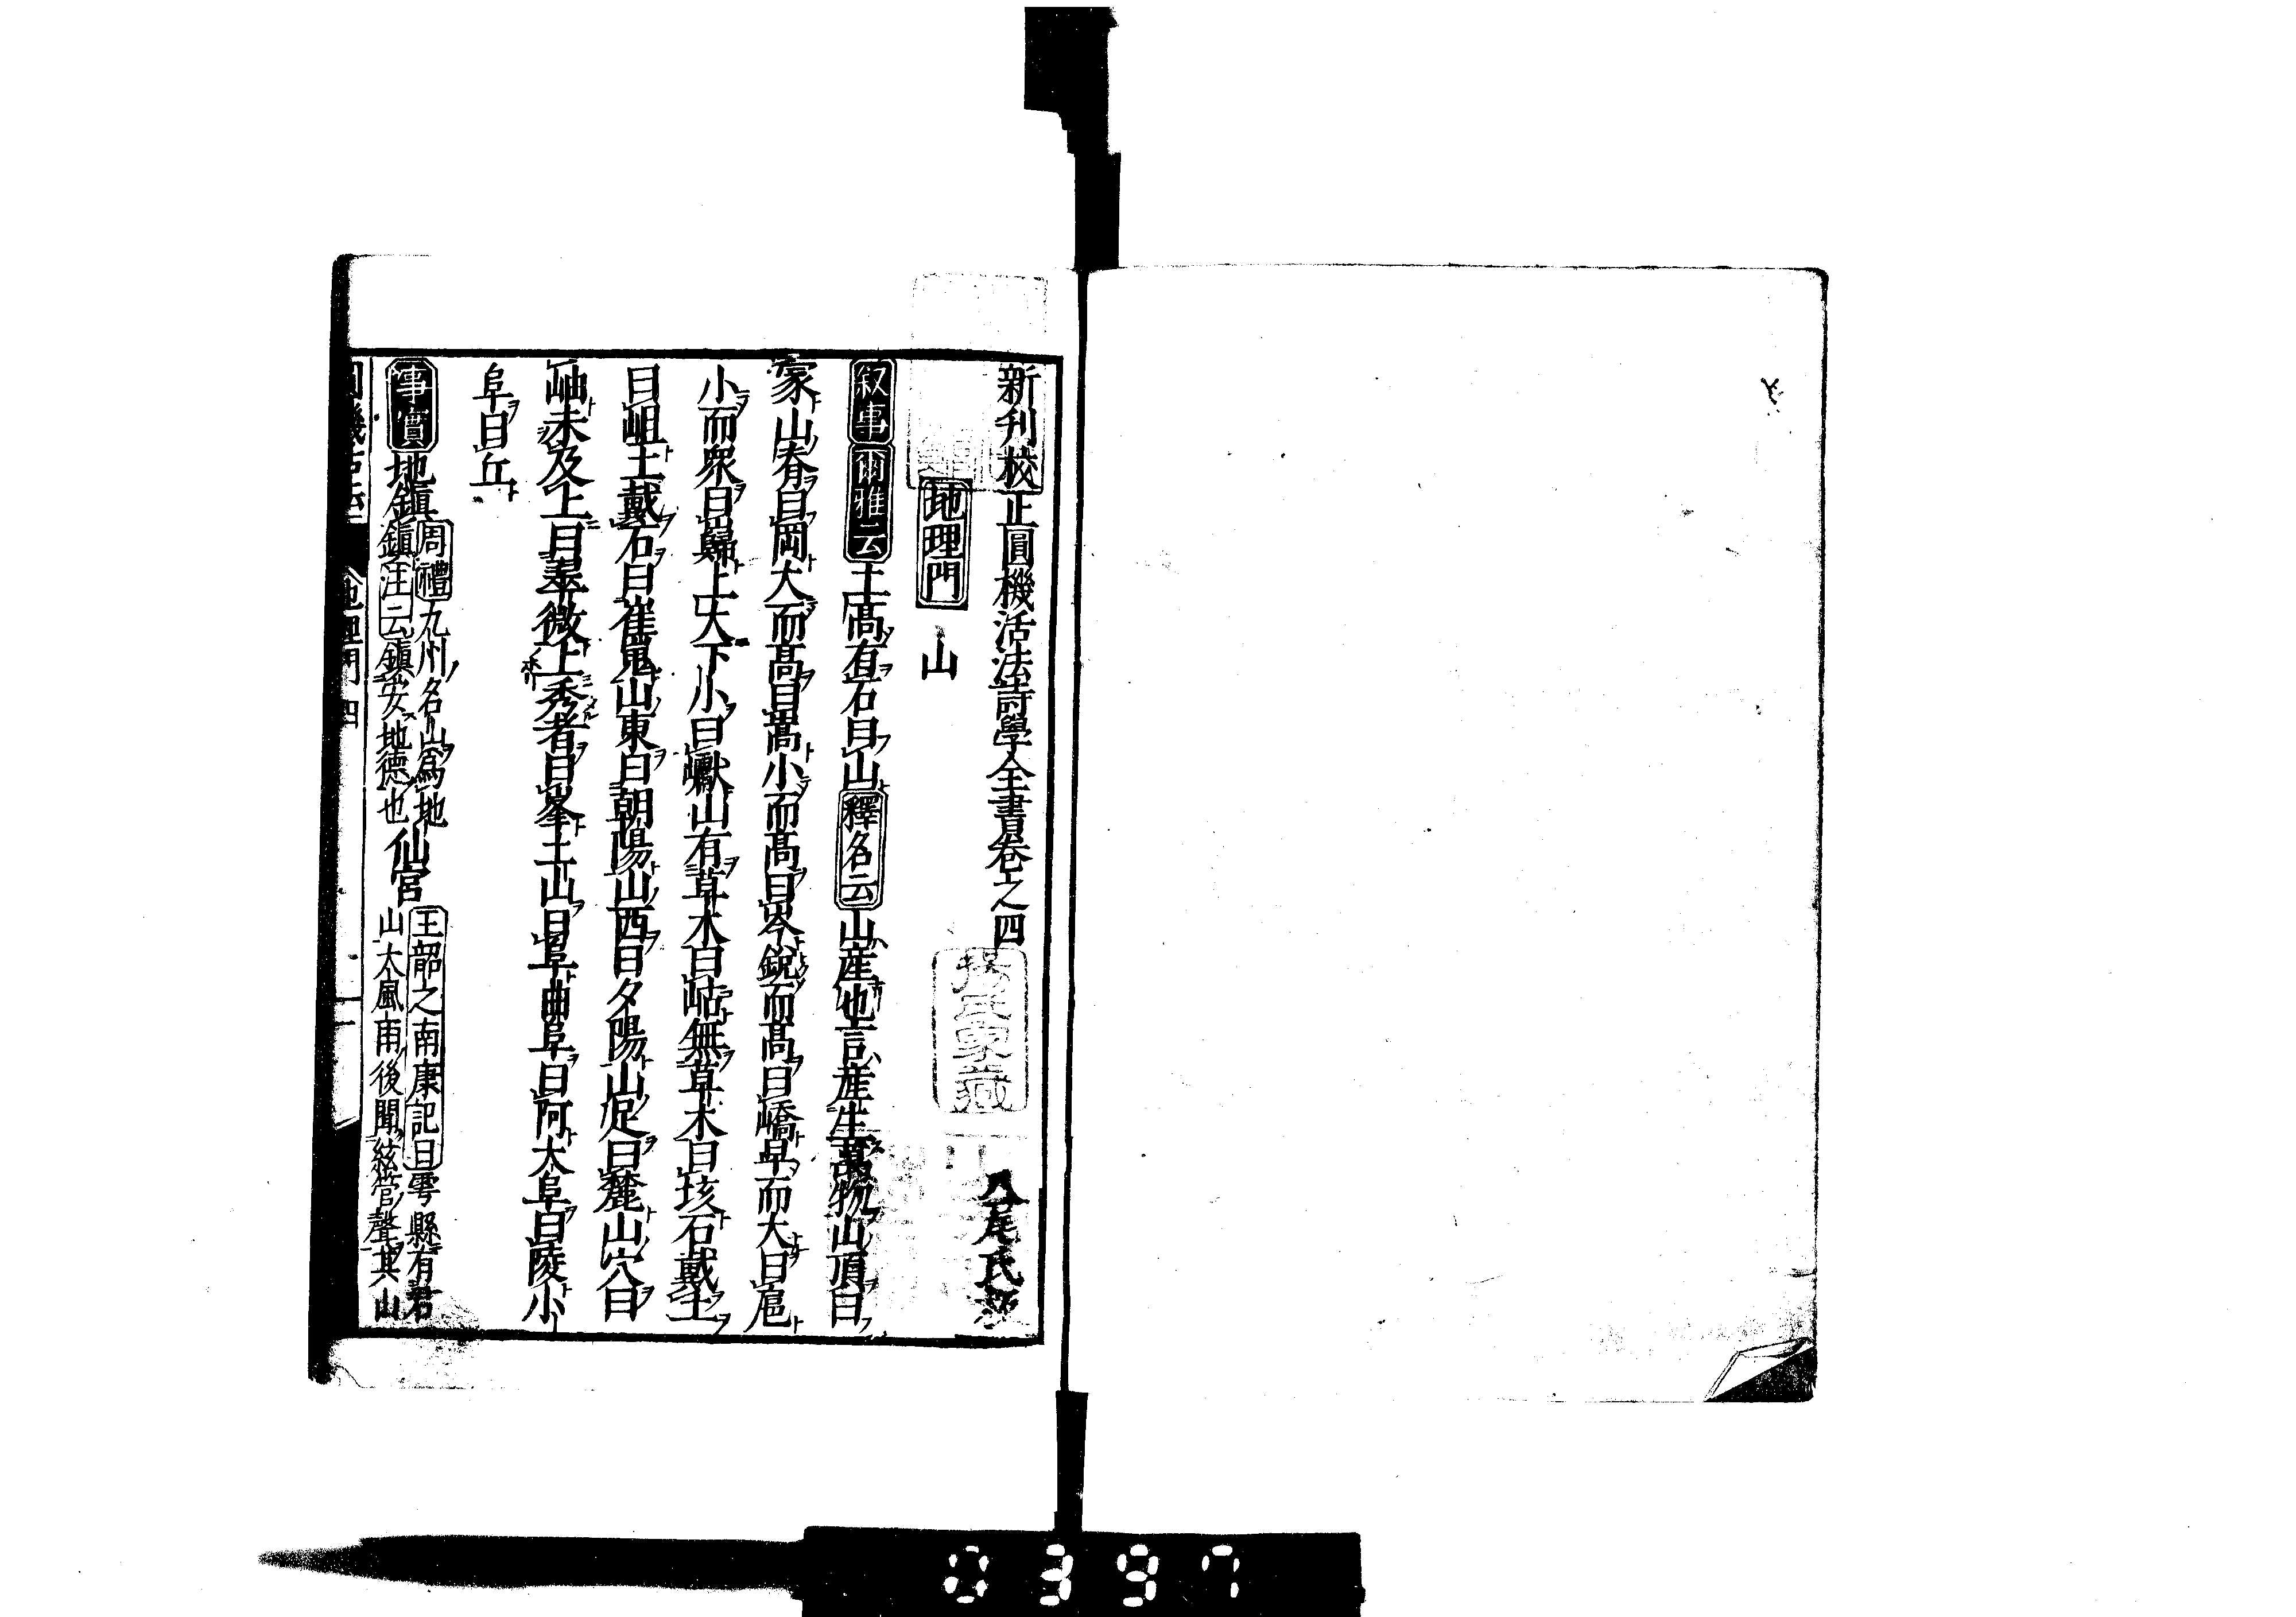 新刊校正圓機活法詩學全書卷之四
楊氏家藏
八尾氏
地理門 山
叙事 爾雅云 土高有石曰山 釋名云 山產也言產生萬物山頂曰
冢山脊曰岡大而高曰嵩小而高曰岑銳而高曰嶠卑而大曰扈
小而衆曰巋上大下小曰巘山有草木曰岵無草木曰垓石戴土
曰岨土戴石曰崔嵬山東曰朝陽山西曰夕陽山足曰麓山穴曰
岫未及上曰翠微上秀者曰峯土山曰阜曲阜曰阿大阜曰陵小
阜曰丘
事實 地鎮 周禮九州名山爲地
鎮注云鎮安地德也 仙宮 王韶之南康記曰雩縣有君
山大風雨後聞絃管聲其山
地理門 四
一
0397